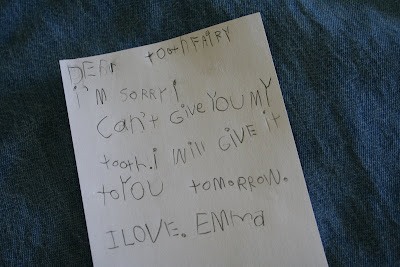 DEAR toothFAiRY
i'm SORRY i
can't GiVE YOU MY
tooth. i Will GiVE it
toYOU tomoRROW.
I LOVE. EMma